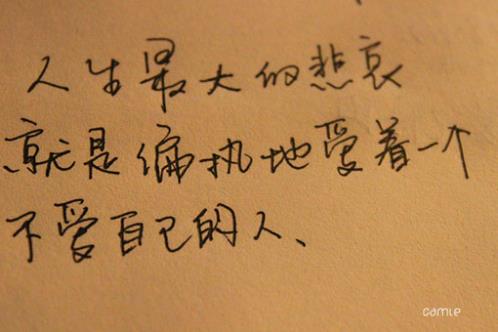 人生最大的悲哀
就是偏执地爱着一个
不爱自己的人、
camie